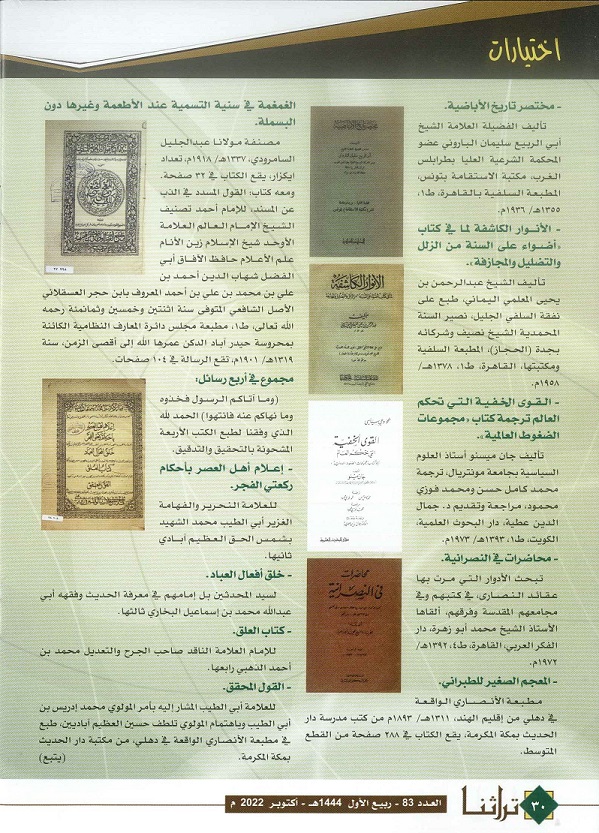 اختيارات
- مختصر تاريخ الأباضية.
تأليف الفضيلة العلامة الشيخ
أبي الربيع سليمان الباروني عضو
المحكمة الشرعية العليا بطرابلس
الغرب، مكتبة الاستقامة بتونس،
المطبعة السلفية بالقاهرة، ط١،
١٣٥٥هـ/ ١٩٣٦م.
- الأنوار الكاشفة لما في كتاب
«أضواء على السنة من الزلل
والتضليل والمجازفة».
تأليف الشيخ عبدالرحمن بن
يحيى المعلمي اليماني، طبع على
نفقة السلفي الجليل، نصير السنة
المحمدية الشيخ نصيف وشركائه
بجدة (الحجاز)، المطبعة السلفية
ومكتبتها، القاهرة، ط١، ١٣٧٨هـ/
١٩٥٨م.
- القوى الخفية التي تحكم
العالم ترجمة كتاب «مجموعات
الضغوط العالمية».
تأليف جان مينو أستاذ العلوم
السياسية بجامعة مونتريال، ترجمة
محمد كامل حسن ومحمد فوزي
محمود، مراجعة وتقديم د. جمال
الدين عطية، دار البحوث العلمية،
الكويت، ط١، ١٣٩٣هـ/ ١٩٧٣م.
- محاضرات في النصرانية.
تبحث الأدوار التي مرت بها
عقائد النصارى، في كتبهم وفي
مجامعهم المقدسة وفرقهم، ألقاها
الأستاذ الشيخ محمد أبو زهرة، دار
الفكر العربي، القاهرة، ط٤، ١٣٩٢هـ/
١٩٧٢م.
- المعجم الصغير للطبراني.
مطبعة الأنصاري الواقعة
في دهلي من إقليم الهند، ١٣١١هـ/ ١٨٩٣م من كتب مدرسة دار
الحديث بمكة المكرمة، يقع الكتاب في ٢٨٨ صفحة من القطع
المتوسط.
مختصر تاريخ الأباضية
الأنوار الكاشفة
القوى الخفية
محاضرات
في النصرانية
الغمغمة في سنية التسمية عند الأطعمة وغيرها دون
البسملة.
مصنفة مولانا عبدالجليل
السامرودي، ١٣٣٧هـ/ ١٩١٨م، تعداد
ايكزار، يقع الكتاب في ٣٢ صفحة.
ومعه كتاب: القول المسدد في الذب
عن المسند، للإمام أحمد تصنيف
الشيخ الإمام العالم العلامة
الأوحد شيخ الإسلام زين الأنام
علم الأعلام حافظ الآفاق أبي
الفضل شهاب الدين أحمد بن
علي بن محمد بن علي بن أحمد المعروف بابن حجر العسقلاني
الأصل الشافعي المتوفى سنة اثنتين وخمسين وثمانمئة رحمه
الله تعالى، ط١، مطبعة مجلس دائرة المعارف النظامية الكائنة
بمحروسة حيدر آباد الدكن عمرها الله إلى أقصى الزمن، سنة
١٣١٩هـ/ ١٩٠١م، تقع الرسالة في ١٠٤ صفحات.
مجموع في أربع رسائل:
(وما آتاكم الرسول فخذوه
وما نهاكم عنه فانتهوا) الحمد لله
الذي وفقنا لطبع الكتب الأربعة
المشحونة بالتحقيق والتدقيق.
- إعلام أهل العصر بأحكام
ركعتي الفجر.
للعلامة النحرير والفهامة
الغزير أبي الطيب محمد الشهيد
بشمس الحق العظيم آبادي
ثانيها.
- خلق أفعال العباد.
لسيد المحدثين بل إمامهم في معرفة الحديث وفقهه أبي
عبدالله محمد بن إسماعيل البخاري ثالثها.
- كتاب العلق.
للإمام العلامة الناقد صاحب الجرح والتعديل محمد بن
أحمد الذهبي رابعها.
- القول المحقق.
للعلامة أبي الطيب المشار إليه بأمر المولوي محمد إدريس بن
أبي الطيب وباهتمام المولوي تلطف حسين العظيم آباديين، طبع
في مطبعة الأنصاري الواقعة في دهلي، من مكتبة دار الحديث
بمكة المكرمة. (يتبع)
٣٠ تراثنا العدد 83 - ربيع الأول 1444هـ - أكتوبر 2022 م